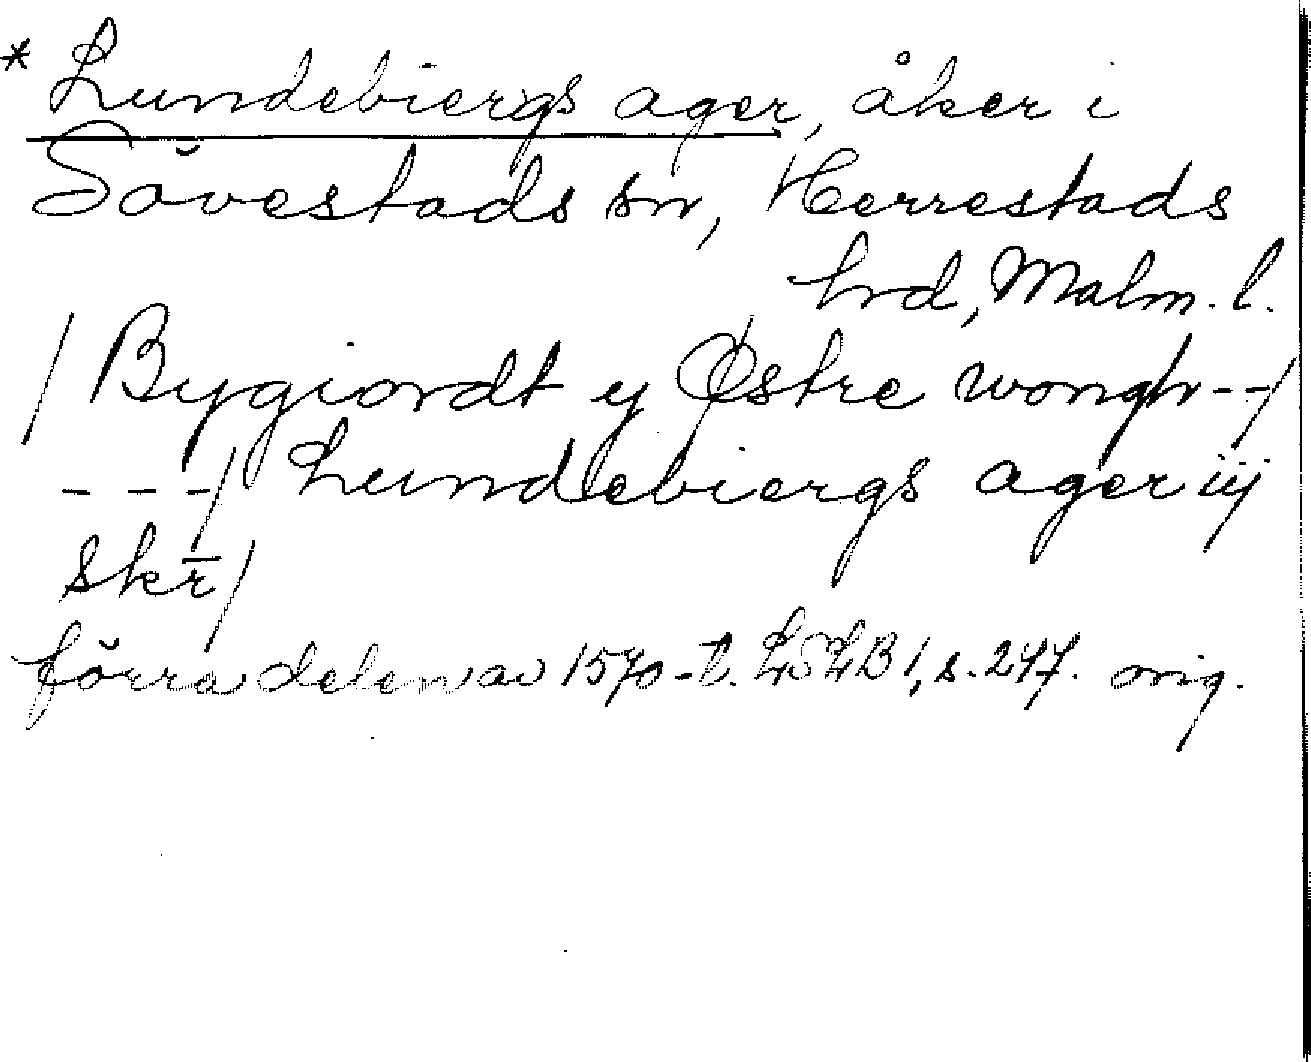 * Lundebiergs ager, åker i
Sövestads sn, Herrestads
hrd, Malm. l.
/ Bygiordt y Østre wongh --/
---/ Lundebiergs ager iij
skr̄/
förra delen av 1570-t. LSLB 1, s. 247. orig.